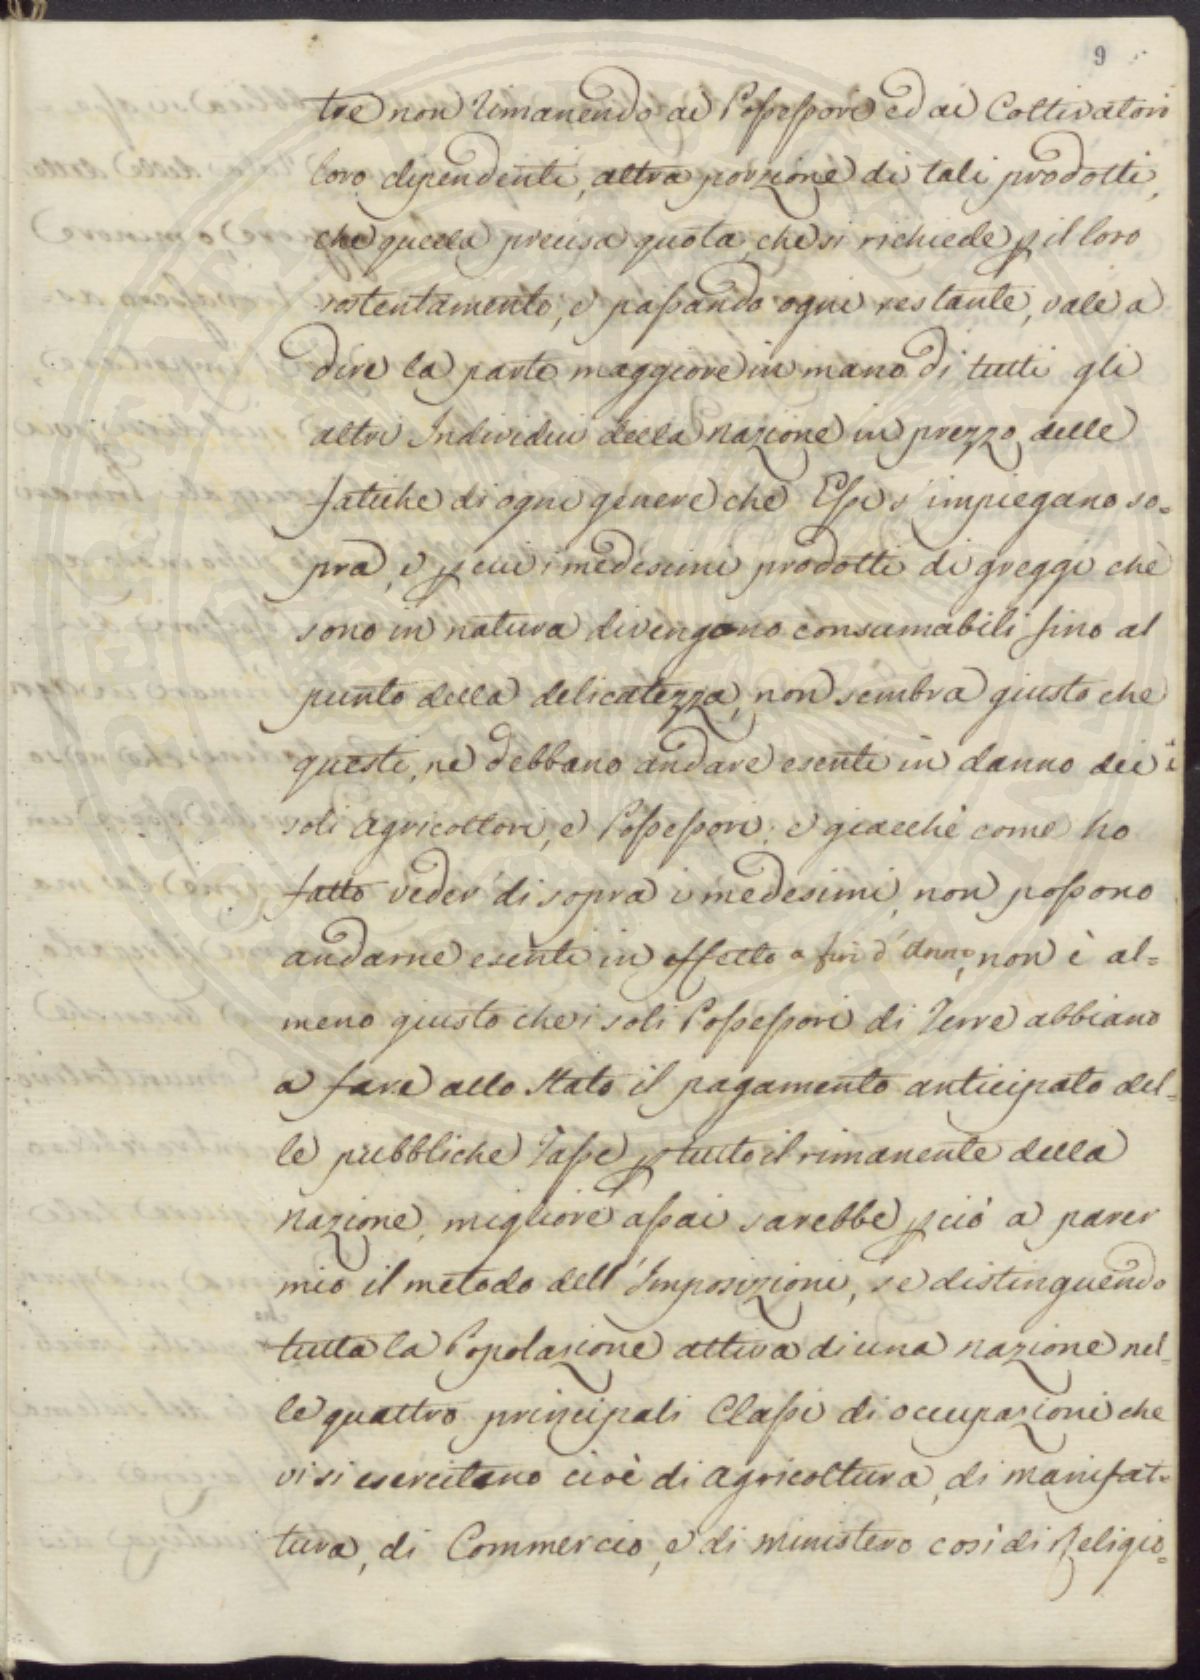 9
tre non rimanendo ai Possessori ed ai Coltivatori
loro dipendenti, altra porzione di tali prodotti,
che quella precisa quota, che si richiede p il loro
sostentamento, e passando ogni restante, vale a
dire la parte maggiore in mano di tutti gli
altri Individui della nazione in prezzo delle
fatiche di ogni genere che Essi s'impiegano so=
pra, e p cui i medesimi prodotti di greggi che
sono in natura divengono consumabili fino al
punto della delicatezza, non sembra giusto che
questi, ne debbano andare esenti in danno dei
soli Agricoltori, e Possessori; e giacchè come ho
fatto veder di sopra i medesimi, non possono
andarne esenti in effetto a fin d'Anno, non è al=
meno giusto che i soli Possessori di Terre abbiano
a fare allo Stato il pagamento anticipato del=
le pubbliche Tasse p tutto il rimanente della
nazione, migliore assai sarebbe p ciò a parer
mio il metodo dell'Imposizioni, se distinguendo
tutta la Popolazione attiva di una nazione nel=
le quattro principali Classi di occupazioni che
vi si esercitano cioè di Agricoltura, di manifat=
tura, di Commercio, e di ministero così di Religio=